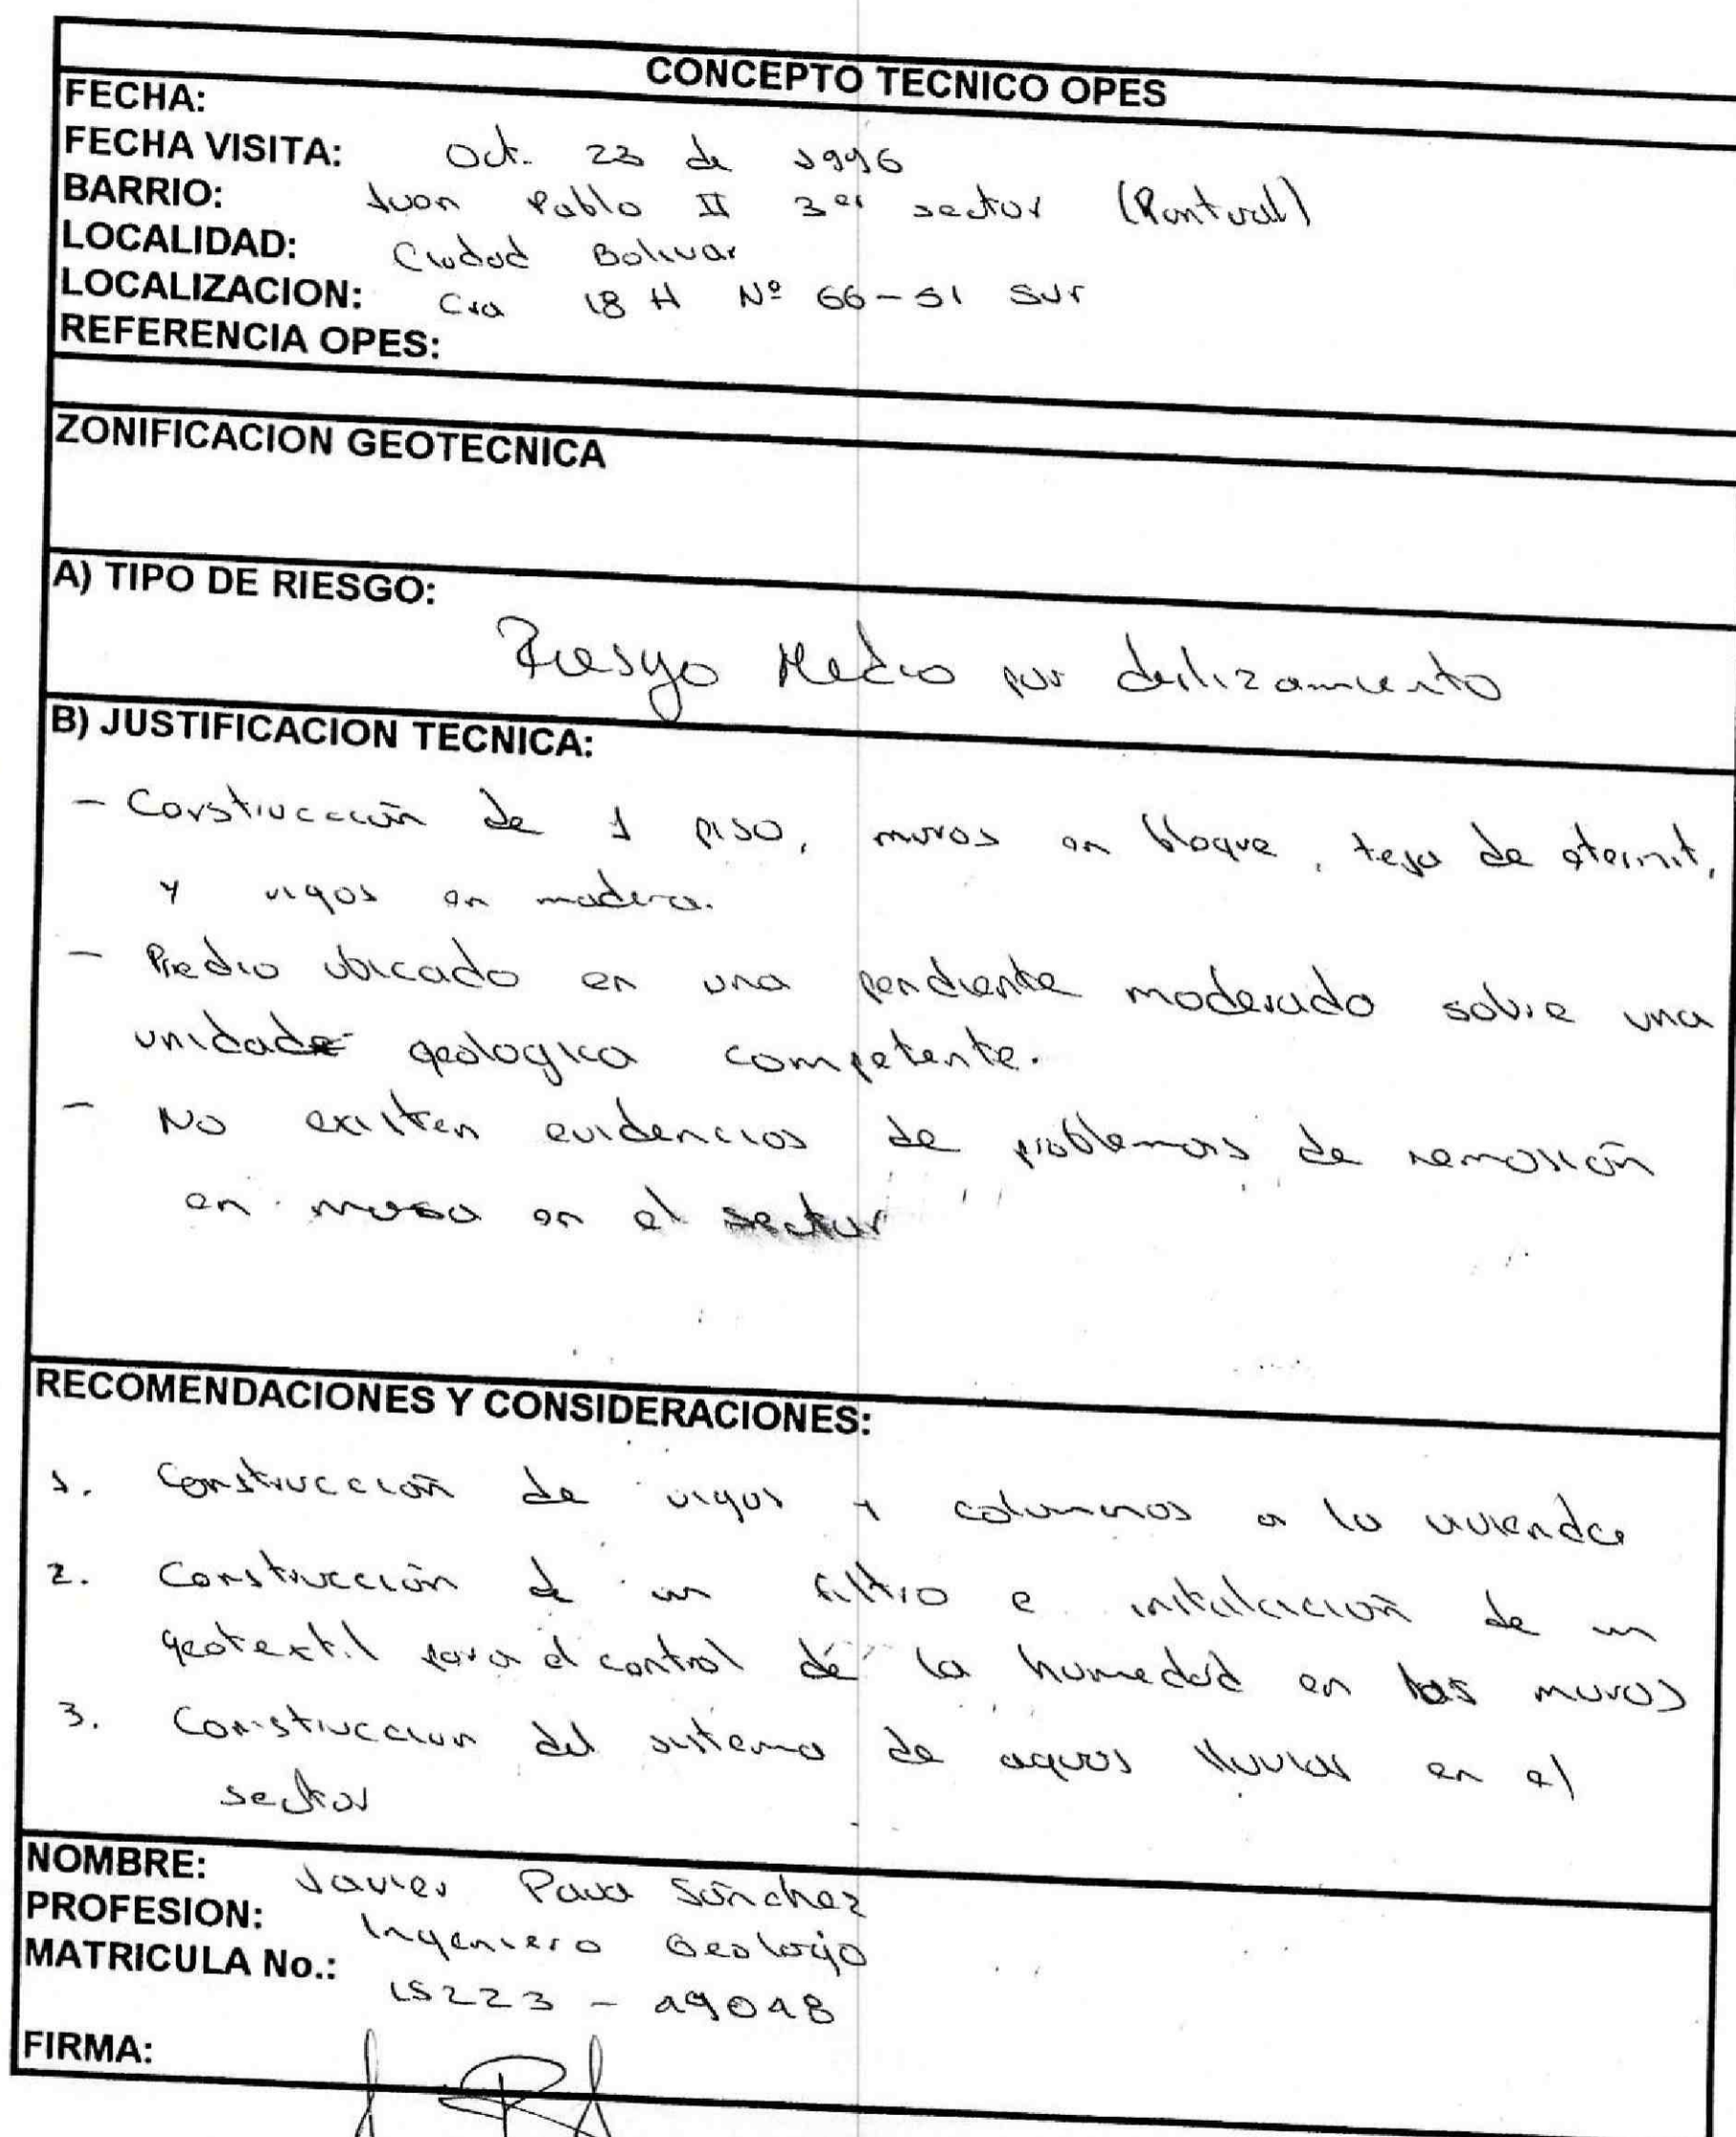 CONCEPTO TECNICO OPES
FECHA:
FECHA VISITA: Oct. 23 de 1996
BARRIO: Juan Pablo II 3er sector (Puntual)
LOCALIDAD: Ciudad Bolivar
LOCALIZACION: Cra 18 H Nº 66-51 Sur
REFERENCIA OPES:
ZONIFICACION GEOTECNICA
A) TIPO DE RIESGO:
Riesgo Medio por deslizamiento
B) JUSTIFICACION TECNICA:
- Construcción de 1 piso, muros en bloque, teja de eternit,
y vigas en madera.
- Predio ubicado en una pendiente moderada sobre una
unidad geologica competente.
- No existen evidencias de problemas de remosión
en masa en el sector
RECOMENDACIONES Y CONSIDERACIONES:
1. Construcción de vigas y columnas a la vivienda
2. Construcción de un filtro e instalación de un
geotextil para el control de la humedad en los muros
3. Construccion del sistema de aguas lluvias en el
sector
NOMBRE: Javier Pava Sánchez
PROFESION: Ingeniero Geologo
MATRICULA No.: 15223 - 19018
FIRMA: